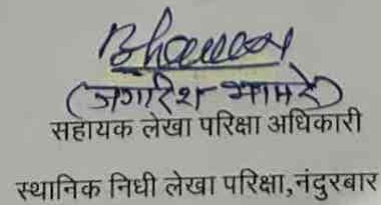 Bhamare
(जगदिश भामरे)
सहायक लेखा परिक्षा अधिकारी
स्थानिक निधी लेखा परिक्षा,नंदुरबार